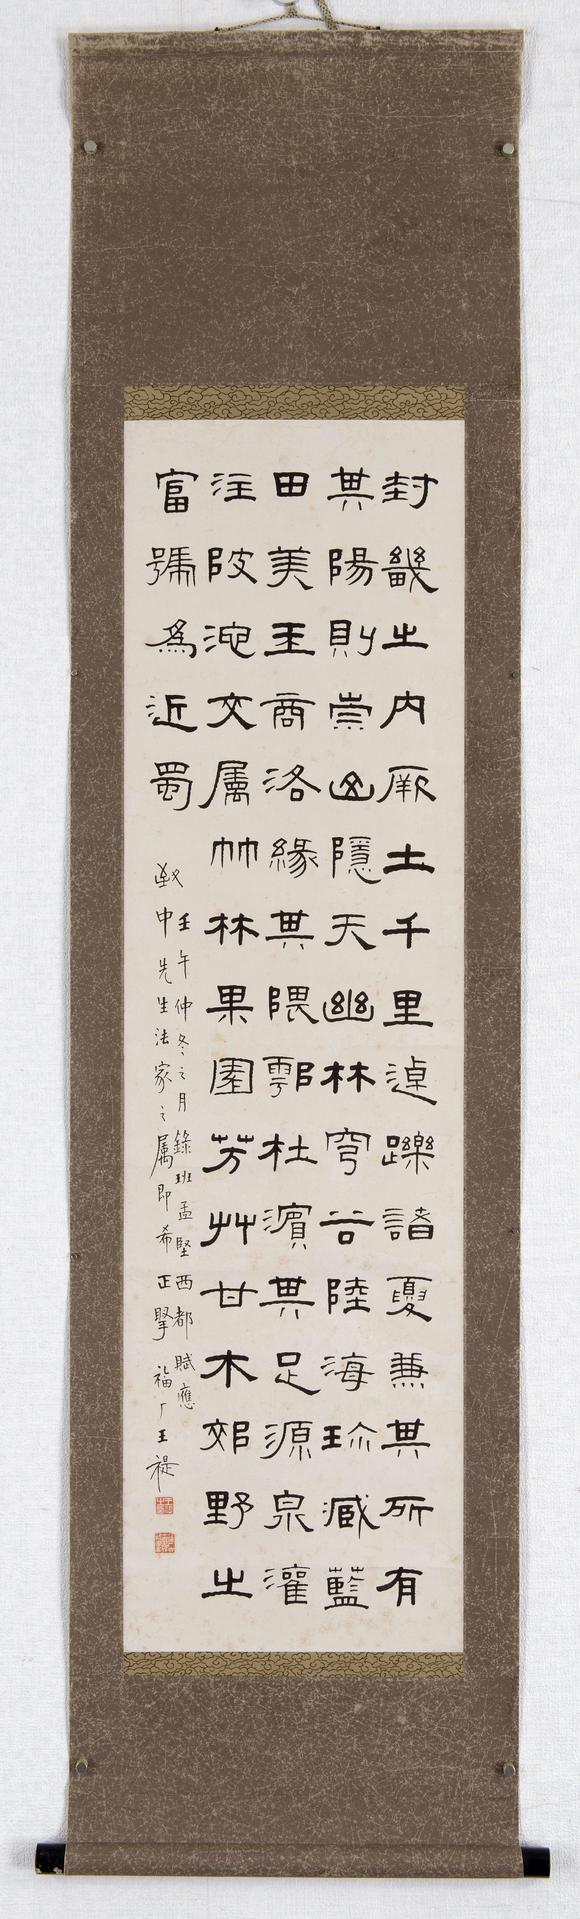 封畿之内厥土千里逴躒諸夏兼其所有
其陽則崇山隱天幽林穹谷陸海珍臧藍
田美玉商洛緣其隈鄠杜濱其足源泉灌
注陂池交属竹林果園芳艸甘木郊野之
富號爲近蜀
壬午仲冬之月錄班孟堅西都賦應
中先生法家之属即希正擘福厂王禔